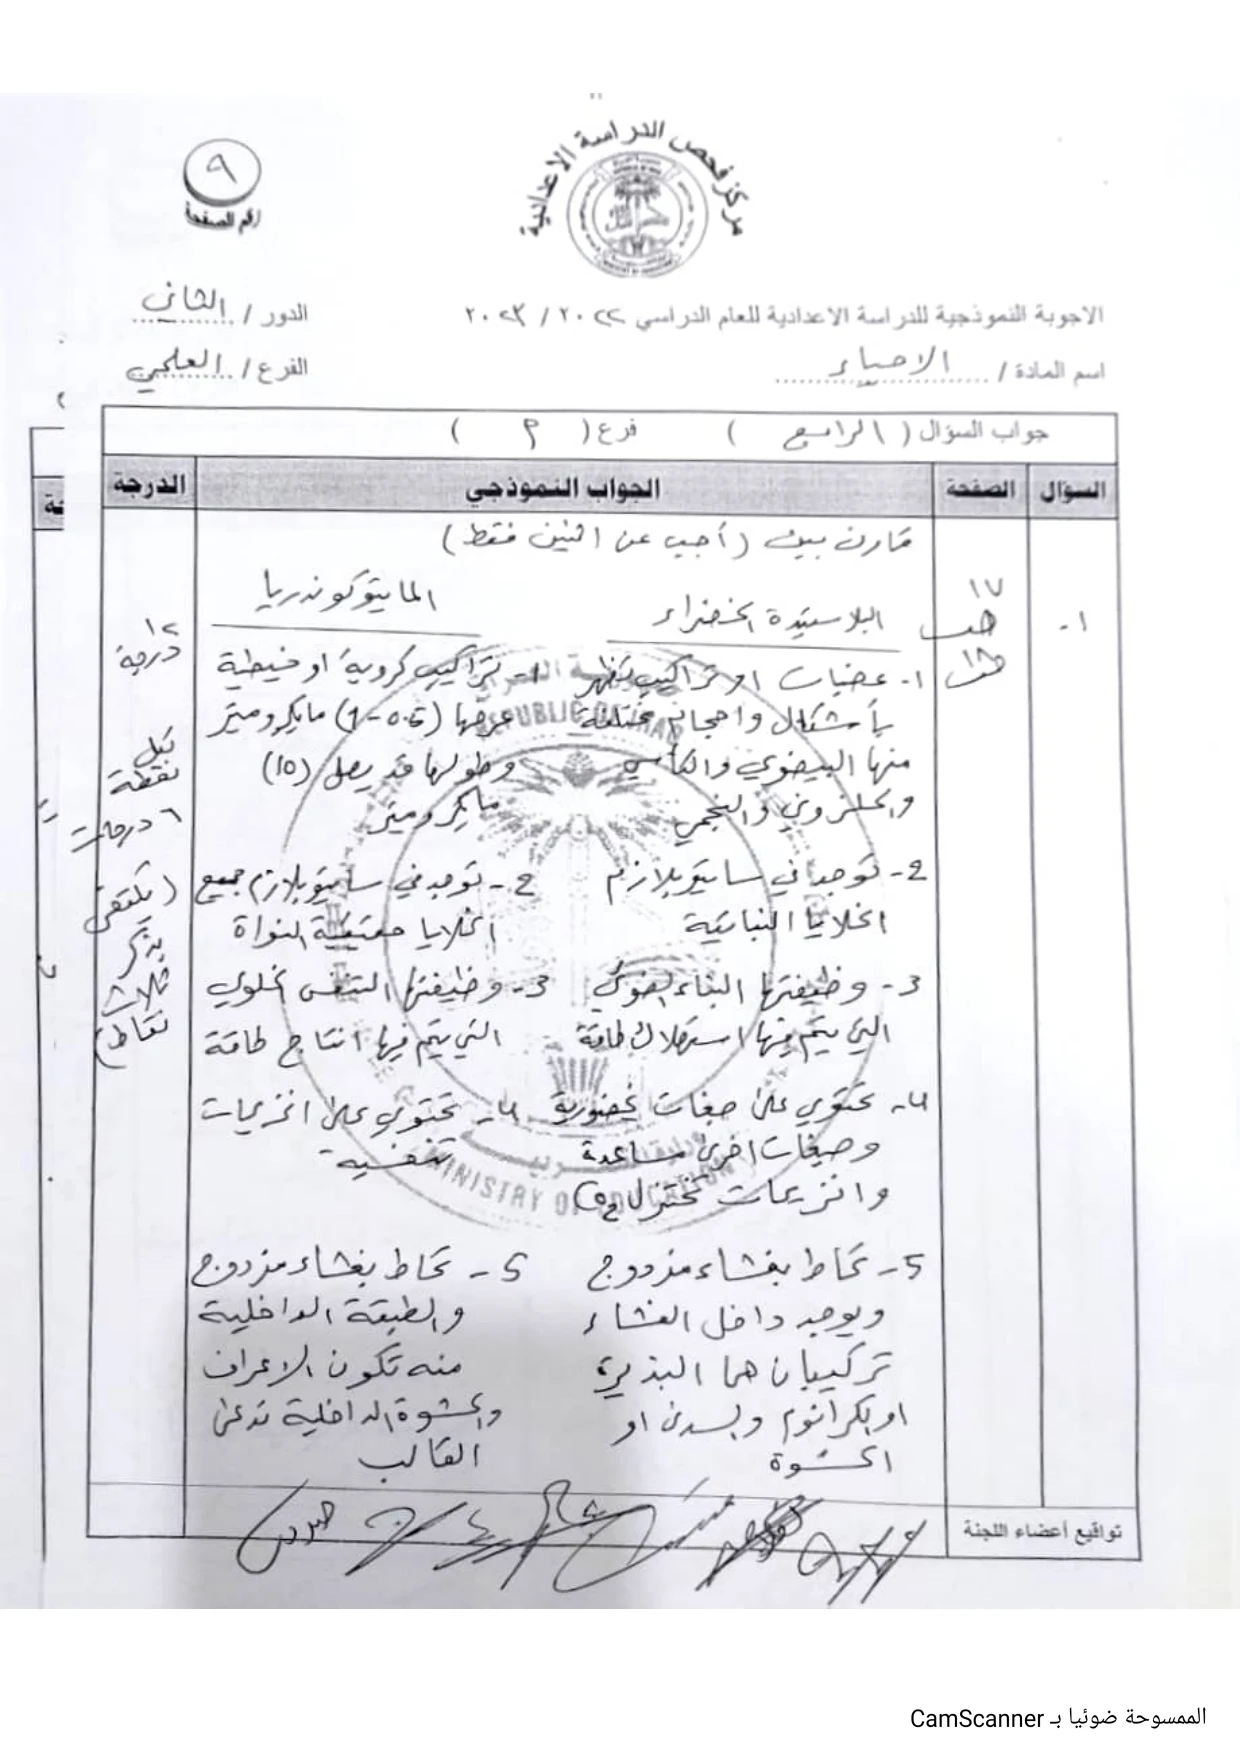 مركز فحص الدراسة الاعدادية
٩
رقم الصفحة
الاجوبة النموذجية للدراسة الاعدادية للعام الدراسي ٢٠٢٢ / ٢٠٢٣
الدور / الثاني
اسم المادة / الاحياء
الفرع / العلمي
جواب السؤال ( الرابع ) فرع ( م )
السؤال الصفحة الجواب النموذجي الدرجة
قارن بين (أجب عن اثنين فقط)
١-
١٧
١٢ درجة
لكل نقطة ٦ درجات
(يكتفى بذكر ثلاث نقاط)
البلاستيدة الخضراء
١- عضيات او تراكيب تظهر
بأشكال واحجام مختلفة
منها البيضوي والكأسي
والحلزوني والنجمي
2- توجد في سايتوبلازم
الخلايا النباتية
3- وظيفتها البناء الضوئي
التي يتم فيها استهلاك طاقة
4- تحتوي على صبغات يخضورية
وصبغات اخرى مساعدة
وانزيمات تختزل
5- تحاط بغشاء مزدوج
ويوجد داخل الغشاء
تركيبان هما البذيرة
او الكرانوم والسدى او
الحشوة
المايتوكوندريا
١- تراكيب كروية او خيطية
عرضها (0.5-1) مايكرومتر
وطولها قد يصل (10)
مايكرومتر
2- توجد في سايتوبلازم جميع
الخلايا حقيقية النواة
3- وظيفتها التنفس الخلوي
التي يتم فيها انتاج طاقة
4- تحتوي على انزيمات
تنفسية
5- تحاط بغشاء مزدوج
والطبقة الداخلية
منه تكون الاعراف
والحشوة الداخلية تدعى
القالب
تواقيع أعضاء اللجنة
REPUBLIC OF IRAQ
MINISTRY OF EDUCATION
الممسوحة ضوئيا بـ CamScanner